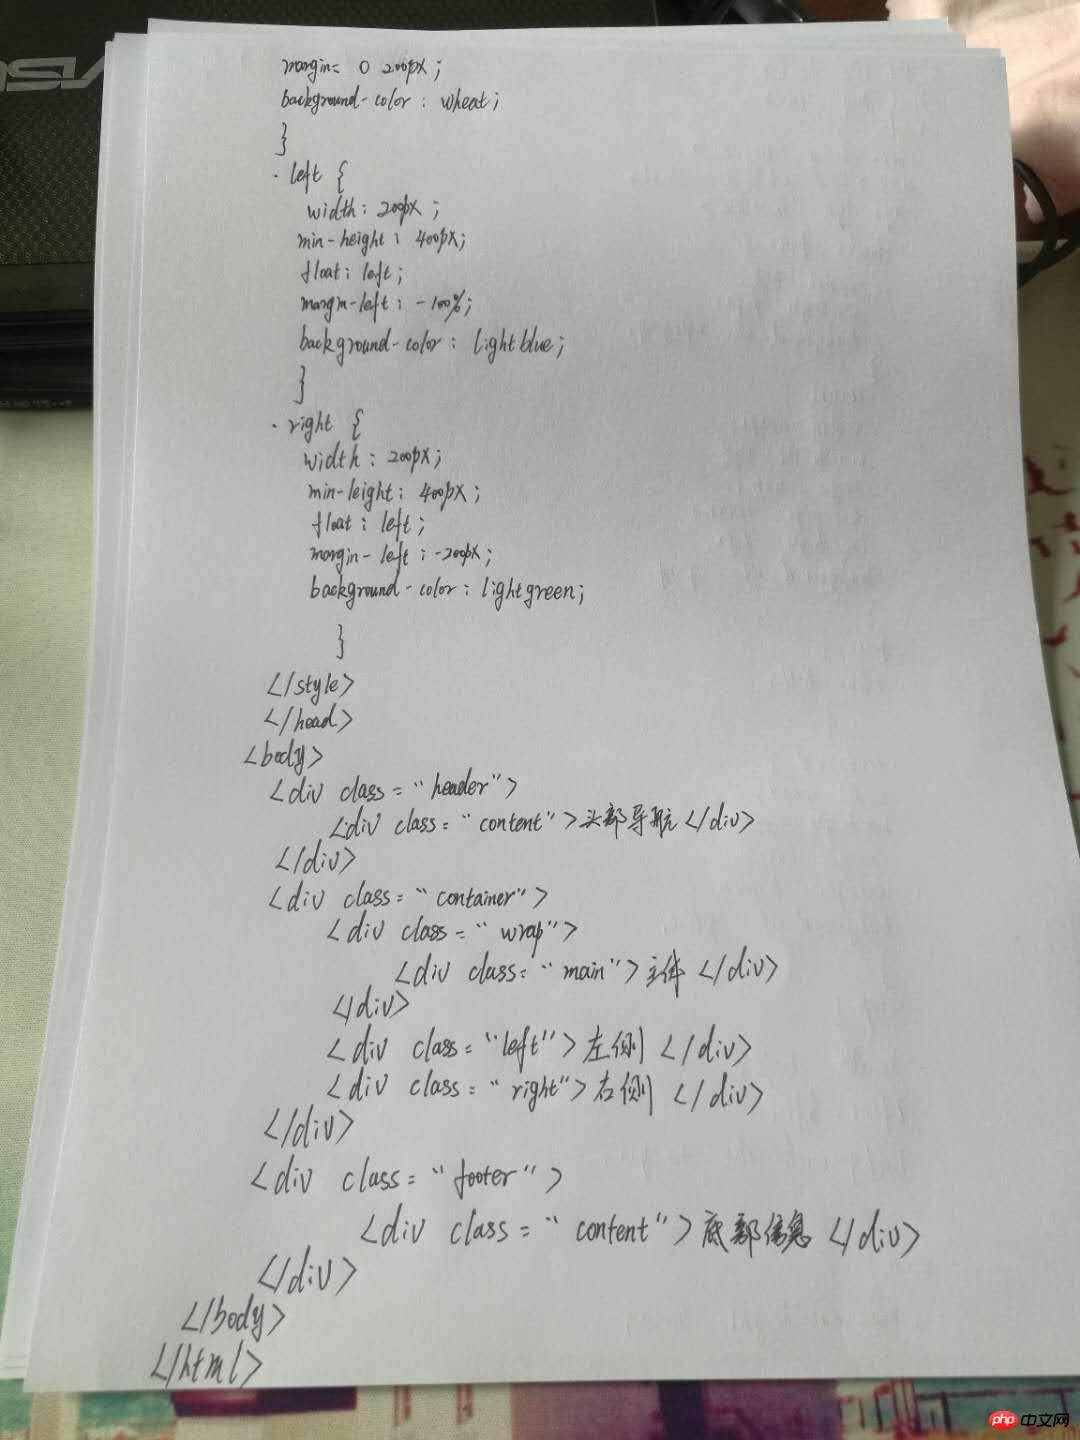 margin: 0 200px;
background-color: wheat;
}
.left {
width: 200px;
min-height: 400px;
float: left;
margin-left: -100%;
background-color: lightblue;
}
.right {
width: 200px;
min-leight: 400px;
float: left;
margin-left: -200px;
background-color: lightgreen;
}
</style>
</head>
<body>
<div class="header">
<div class="content">头部导航</div>
</div>
<div class="container">
<div class="wrap">
<div class="main">主体</div>
</div>
<div class="left">左侧</div>
<div class="right">右侧</div>
</div>
<div class="footer">
<div class="content">底部信息</div>
</div>
</body>
</html>
php 中文网